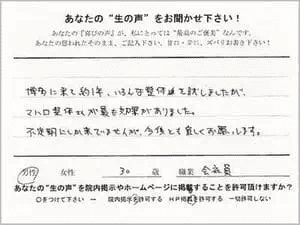 あなたの“生の声”をお聞かせ下さい！
あなたの『喜びの声』が、私にとっては“最高のご褒美”なんです。
あなたの思われたそのまま、ご記入下さい。甘口・辛口、ズバリお書き下さい！
博多に来て約1年、いろんな整体を試しましたが、
マルロ整体さんが最も効果がありました。
不定期にしか来ていませんが、今後とも宜しくお願いします。
男性 女性 30 歳 職業 会社員
あなたの“生の声”を院内掲示やホームページに掲載することを許可頂けますか？
○をつけて下さい → 院内掲示を許可する HP掲載を許可する 一切許可しない